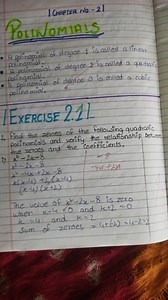 CHAPTER NO - 2
POLYNOMIALS
A polynomial of degree 1 is called a linear
polynomial.
A polynomial of degree 2 is called a quadratic
polynomial.
A polynomial of degree 3 is called a cubic
polynomial.
EXERCISE 2.1
1. Find the zeroes of the following quadratic
polynomials and verify the relationship bet
the zeroes and the coefficients.
x²-2x-8
x²-4x+2x-8
x(x-4)+2(x-4)
(x-4)(x+2)
The value of x²-2x-8 is zero
when x-4=0 and x+2=0
x=4 and x=-2
Sum of zeroes =